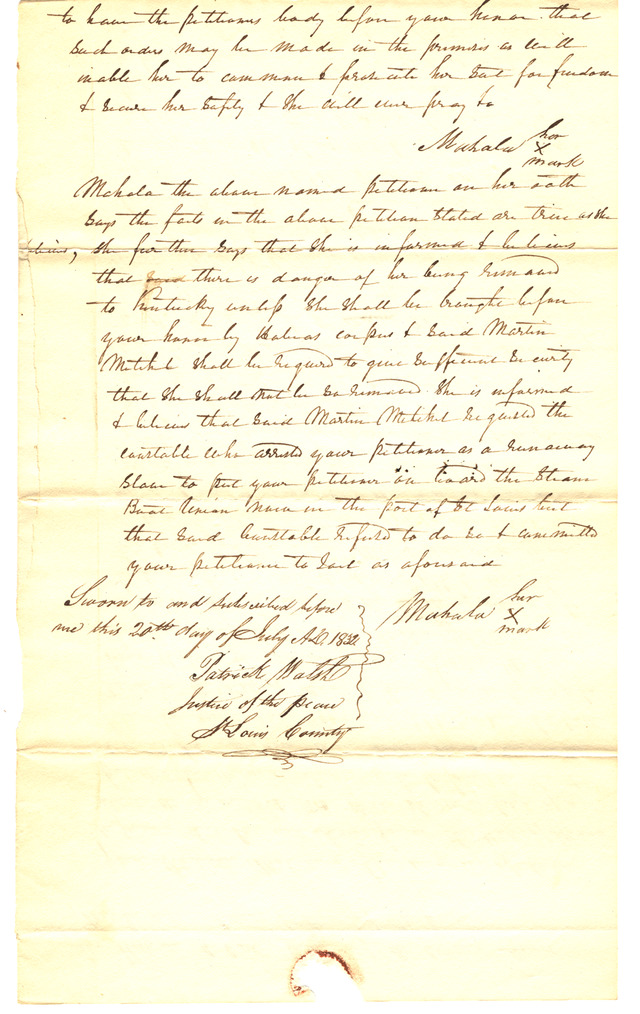 to have the petitioners body before your honor. that
such orders may be made in the premises as will
inable her to commence & prosecute her suit for freedom
& secure her safety & she will ever pray &c
Mahala her
X
mark
Mahala the above named petitioner on her oath
says the facts in the above petition stated are true as she
believes, she further says that she is informed & believes
that said there is danger of her being removed
to Kentucky unless she shall be brought before
your honor by Habeas corpus & said Martin
Mitchel shall be required to give sufficient security
that she shall not be so removed. She is informed
& believes that said Martin Mitchel requested the
constable who arrested your petitioner as a runaway
slave to put your petitioner on board the Steam
Boat Union now in the port of St Louis but
that said Constable refused to do so & committed
your petitioner to Jail as aforesaid
Sworn to and subscribed before
me this 20th day of July A.D. 1832
Mahala her
X
mark
Patrick Walsh
Justice of the peace
St Louis County